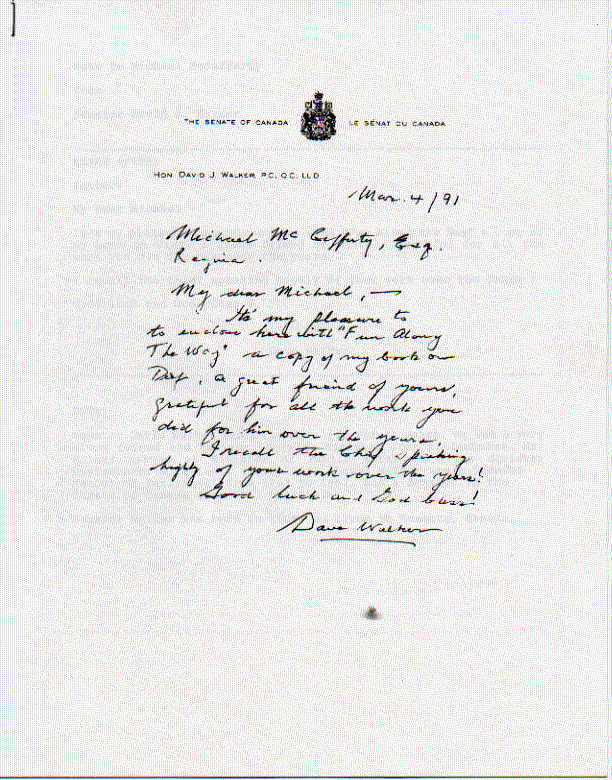 THE SENATE OF CANADA
LE SÉNAT DU CANADA
HON DAVID J WALKER P.C. Q.C. LL.D
Mar. 4/91
Michael Mc Cafferty, Esq.
Regina.
My dear Michael, —
It's my pleasure to
to enclose herewith "Fun Along
The Way" a copy of my book on
Dief, a great friend of yours,
grateful for all the work you
did for him over the years.
I recall the Chief speaking
highly of your work over the years!
Good luck and God bless!
Dave Walker